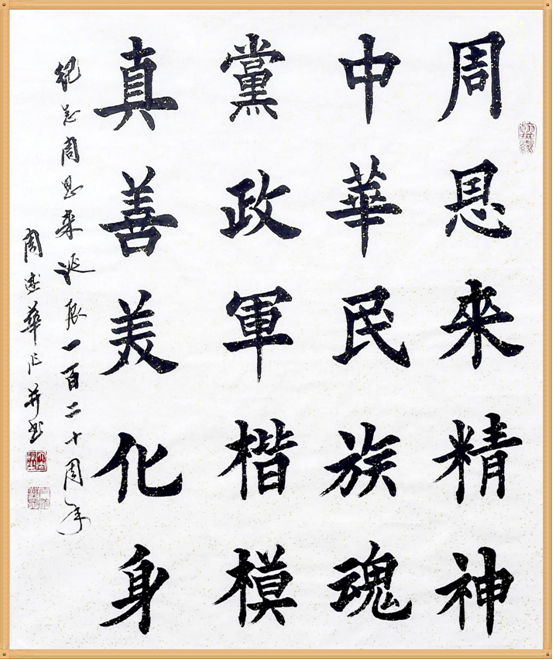 周恩来精神
中華民族魂
黨政軍楷模
真善美化身
纪念周恩来诞辰一百二十周年
周志華作并书